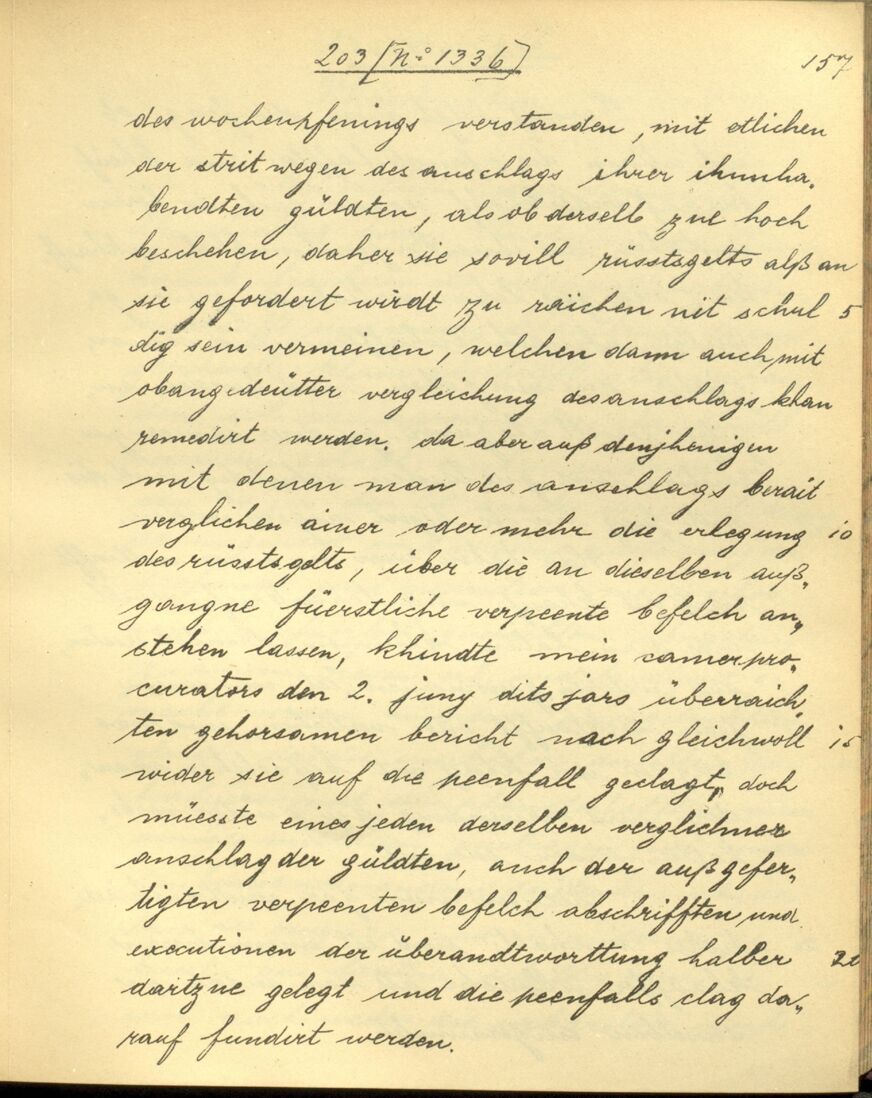 203 [N° 1336]
157
des wochenpfenings verstanden, mit etlichen
der strit wegen des anschlags ihrer ihnnha„
bendten güldten, als ob derselb zue hoch
beschehen, daher sie sovill rüsstsgelts alß an
sie gefordert wirdt zu raichen nit schul 5
dig sein vermeinen, welchen dann auch mit
obangedeütter vergleichung des anschlags khan
remedirt werden. da aber auß denjhenigen
mit denen man des anschlags berait
verglichen ainer oder mehr die erlegung 10
des rüsstsgelts, über die an dieselben auß„
gangne füerstliche verpeente befelch an„
stehen lassen, khindte mein camerpro„
curators den 2. juny dits jars überraich„
ten gehorsamen bericht nach gleichwoll 15
wider sie auf die peenfall geclagt, doch
müesste eines jeden derselben verglichner
anschlag der güldten, auch der außgefer„
tigten verpeenten befelch abschrifften und
executionen der überandtworttung halber 20
dartzue gelegt und die peenfalls clag da„
rauf fundirt werden.